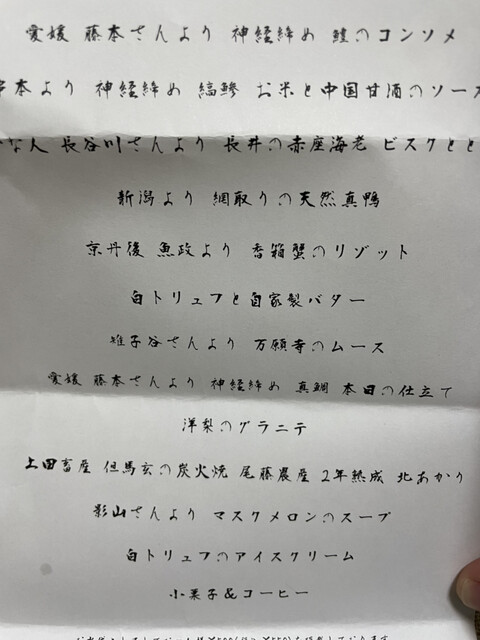 愛媛 藤本さんより 神経締め 鱧のコンソメ
串本より 神経締め 縞鯵 お米と中国甘酒のソース
な人 長谷川さんより 長井の赤座海老 ビスクとと
新潟より 網取りの天然真鴨
京丹後 魚政より 香箱蟹のリゾット
白トリュフと自家製バター
雉子谷さんより 万願寺のムース
愛媛 藤本さんより 神経締め 真鯛 本日の仕立て
洋梨のグラニテ
上田畜産 但馬玄の炭火焼 尾藤農産 2年熟成 北あかり
影山さんより マスクメロンのスープ
白トリュフのアイスクリーム
小菓子&コーヒー